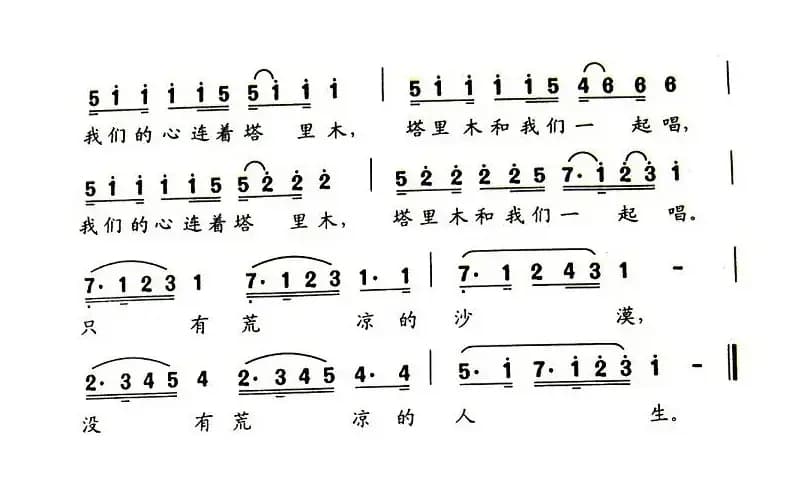 5 i i i i 5 5 i i i | 5 i i i i 5 4 6 6 6 |
我们的心连着塔 里木, 塔里木和我们一 起唱,
5 i i i i 5 5 2̇ 2̇ 2̇ | 5 2̇ 2̇ 2̇ 2̇ 5 7· i 2̇ 3̇ i |
我们的心连着塔 里木, 塔里木和我们一 起唱。
7̣· 1 2 3 1 7̣· 1 2 3 1· 1 | 7̣· 1 2 4 3 1 - |
只 有荒 凉的沙 漠,
2· 3 4 5 4 2· 3 4 5 4· 4 | 5· i 7· i 2̇ 3̇ i - ‖
没 有荒 凉的人 生。